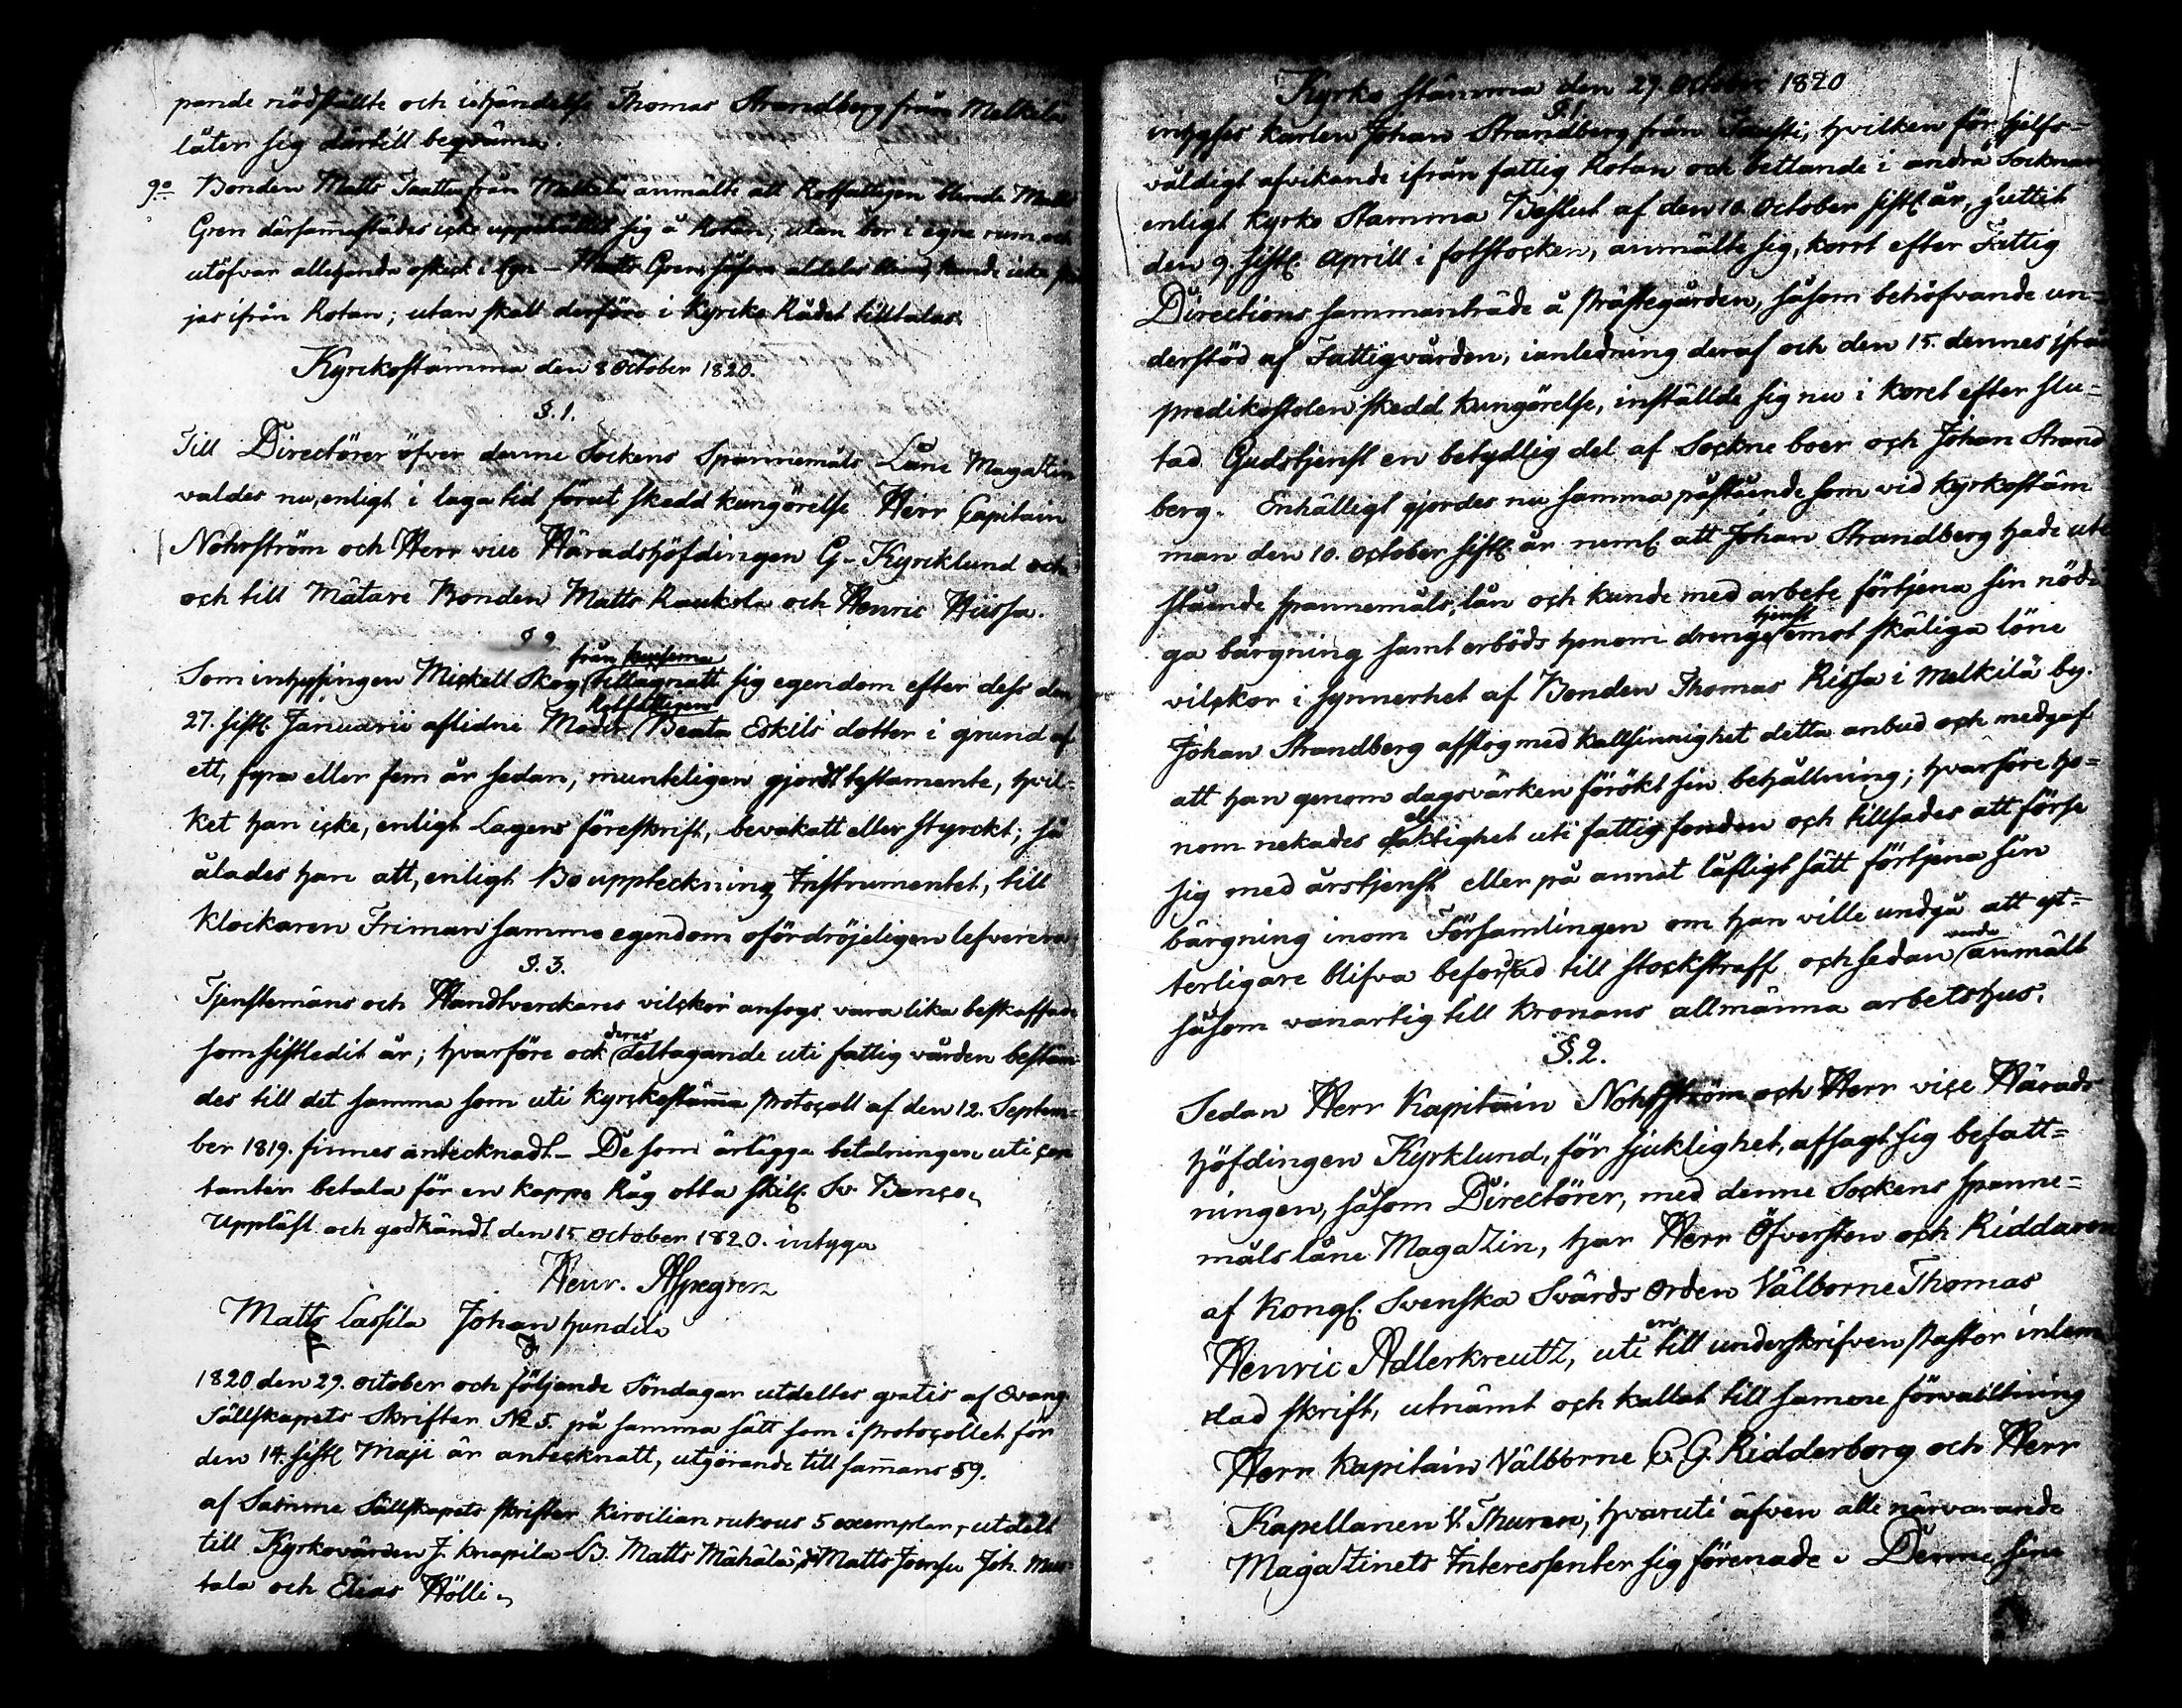 pande nödställte och ishändelse Thomas Strandberg från Melkila
låter sig därtill beqväma.
9:o Bonden Matts Jaatta från Melkila anmälte att Rotfattigen blinde Matts
Gren därsam̄astädes icke uppehållet sig å Rotan, utan bor i egne rum och
utöfvar allehanda oskick i byn – Matts Gren såsom aldeles blind, kunde icke
jas ifrån Rotan; utan skall derföre i Kyrko Rådet tilltalas.
Kyrckostämma den 8 October 1820.
§. 1.
Till Directörer öfver denne Sockens Spannemåls Låne Magazin
valdes nu, enligt i laga tid förut skedd kungörelse Herr Capitain
Nohrström och Herr vice Häradshöfdingen G. Kyrcklund och
och till Mätare Bonden Matts Raukola och Henric Hiissa.
§ 2.
från
Som inhysingen Mickell Skog tillägnatt sig egendom efter dess den
Rotfattigen
27. sistl. Januarii aflidne Moder Beata Eskils dotter i grund af
ett, fyra eller fem år sedan, munteligen gjordt testamente, hvil-
ket han icke, enligt Lagens föreskrift, bevakatt eller styrckt; så
ålades han att, enligt Bouppteckning Instrumentet, till
klockaren Friman samma egendom ofördröjeligen lefverera.
§. 3.
Tjenstemäns och Handtverckares vilckor ansogs vara lika beskaffade
deras
som sistledit år; hvarföre ock deltagande uti fattig vården bestäm-
des till det samma som uti Kyrckostäm̄a Protocoll af den 12. Septem-
ber 1819. finnes antecknadt – De som ärlägga betalningen uti con
tanter betala för en kappa Råg otta skill. Sv. Banco.
Uppläst och godkändt den 15 October 1820. intyga
Henr. Alpegren
Matts Lassila Johan Hundila
1820 den 29. October och följande Söndagar utdeltes gratis af Evang.
Sällskapets Skrifter No 5. på samma sätt som i Protocollet för
den 14. sistl Maji är antecknatt, utgörande till sam̄ans 59.
af Samme Sällskapets skrifter Kivoilian rukous 5 exemplar, utdelt
till Kyrkovärden J. Knapila B. Matts Mähälä, Matts Joensu Joh.
tala och Elias Hölli.
Kyrko stämma den 29. October 1820
§ 1
inhyses karlen Johan Strandberg från Jausti, hvilken för sjelfs-
våldigt afvikande ifrån fattig Rotan och bettlande i andra Socknar
enligt Kyrko Stämma Beslut af den 10. October sistl. år, suttit
den 9 sistl. Aprill i fotstocken, anmälte sig, kort efter Fattig
Directions sammanträde å Prästegården, såsom behöfvande un-
derstöd af Fattigvården, i anledning deraf och den 15. dennes ifrån
predikostolen skedd kungörelse, inställde sig nu i koret efter slu-
tad Gudstjenst en betydlig del af Sockne boer och Johan Strand
berg. Enhälligt gjordes nu samma påstående som vid kyrkostäm
man den 10. October sistl. år neml. att Johan Strandberg hade ute
stående spannemåls lån och kunde med arbete förtjena sin nödi
tjenst
ga bärgning samt erböds honom drenge emot skäliga löne
vilckor i synnerhet af Bonden Thomas Rissa i Melkilä by.
Johan Strandberg afslog med kallsinnighet detta anbud och medgaf
att han genom dagsvärken förökt sin behållning; hvarföre ho-
el
nom nekades daktighet uti fattig fonden och tillsades att förse
sig med årstjenst eller på annat lofligt sätt förtjena sin
bärgning inom Församlingen om han ville undgå att yt-
varda
terligare blifva befordrad till stockstraff och sedan anmält
såsom vanartig till Kronans allmänna arbetshus.
§. 2.
Sedan Herr Kapitain Nohrström och Herr vice Härads
höfdingen Kyrklund, för sjuklighet, afsagt sig befatt-
ningen, såsom Directörer, med denne Sockens spanne-
måls låne Magazin, har Herr Öfversten och Riddaren
af Kongl. Svenska Svärds Orden Välborne Thomas
en
Henric Adlerkreutz, uti till underskrifven Pastor inlem
nad skrift, utnämt och kallat till samme förvalltning
Herr Kapitain Välborne C. G. Ridderborg och Herr
Kapellanen V. Thuren, hvaruti äfven alle närvarande
Magazinets Interessenter sig förenade. Denne sine